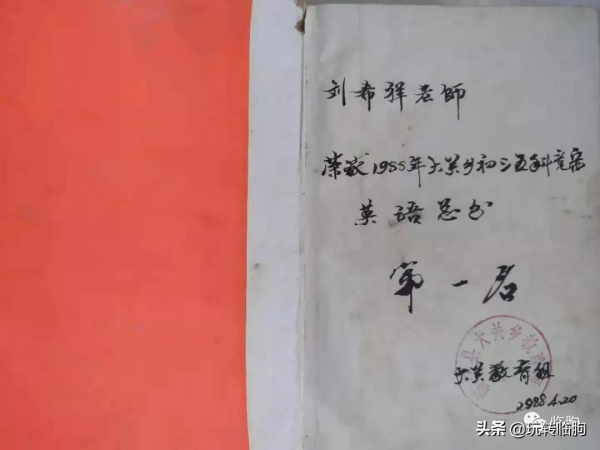 刘希祥老師
荣获1988年大关乡初三五科竞赛
英语总分
第一名
县大关乡教
大关教育组
1988.4.20
临朐
头条 @玩转临朐